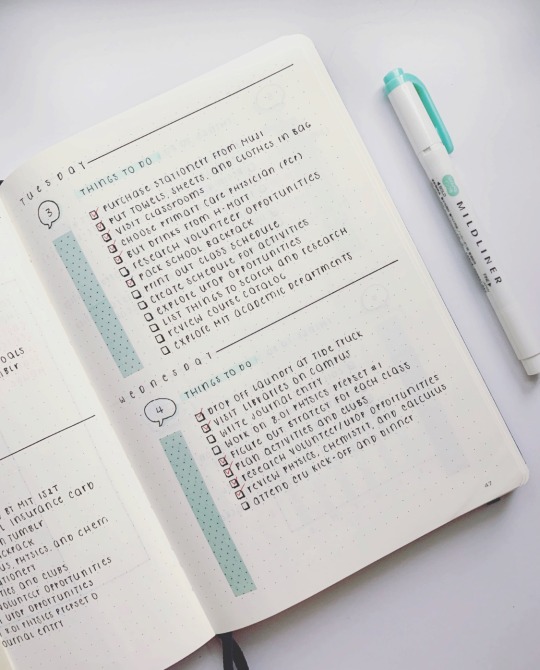 OALS
BLR
BT MIT IS&T
L INSURANCE CARD
N TUMBLR
CKPACK
US, PHYSICS, AND CHEM
TIONERY
TIES AND CLUBS
VOLUNTEER OPPORTUNITIES
UROP OPPORTUNITIES
8.01 PHYSICS PREPSET 0
OURNAL ENTRY
TUESDAY
3
THINGS TO DO
PURCHASE STATIONERY FROM MUJI
PUT TOWELS, SHEETS, AND CLOTHES IN BAG
VISIT CLASSROOMS
CHOOSE PRIMARY CARE PHYSICIAN (PCP)
BUY DRINKS FROM H-MART
RESEARCH VOLUNTEER OPPORTUNITIES
PACK SCHOOL BACKPACK
PRINT OUT CLASS SCHEDULE
CREATE SCHEDULE FOR ACTIVITIES
EXPLORE UROP OPPORTUNITIES
LIST THINGS TO SEARCH AND RESEARCH
REVIEW COURSE CATALOG
EXPLORE MIT ACADEMIC DEPARTMENTS
WEDNESDAY
4
THINGS TO DO
DROP OFF LAUNDRY AT TIDE TRUCK
VISIT LIBRARIES ON CAMPUS
WRITE JOURNAL ENTRY
WORK ON 8.01 PHYSICS PREPSET #1
FIGURE OUT STRATEGY FOR EACH CLASS
PLAN ACTIVITIES AND CLUBS
RESEARCH VOLUNTEER/UROP OPPORTUNITIES
REVIEW PHYSICS, CHEMISTRY, AND CALCULUS
ATTEND CPU KICK-OFF AND DINNER
47
MILDLINER